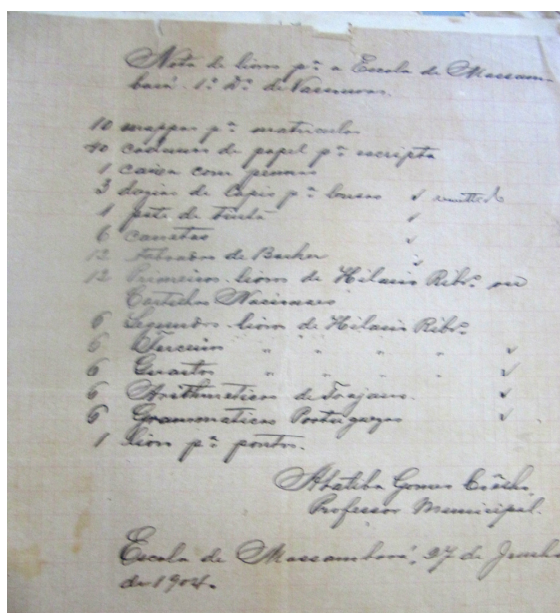 Nota de livros pª a Escola de Massam-
bará. 1º Dº de Vassouras.
10 mappas pª matriculas
40 cadernos de papel pª escripta
1 caixa com pennas
3 duzias de lapis pª lousas
1 pote de tinta
6 canetas
12 Taboadas de Barker
12 Primeiros livros de Hilario Ribrº ou
Cartilhas Nacionaes
6 Segundos livros de Hilario Ribrº
6 Terceiros " " " "
6 Quartos " " " "
6 Arithmeticas de Trajano.
6 Grammaticas Portuguezas
1 livro pª pontos.
Gomes
Professor Municipal.
Escola de Massambará, 27 de Junho
de 1904.